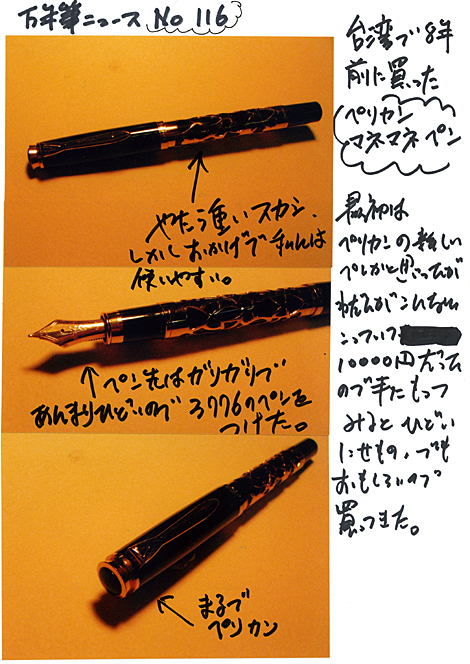 万年筆ニュース No 116
台湾で8年
前に買った
ペリカン
マネマネペン
やたら重いスカシ、
しかしおかげで
使いやすい。
ペン先はガリガリで
あんまりひどいので 3776のペンを
つけた。
まるで
ペリカン
最初は
ペリカンの新しい
ペンかと思ったが
ねだんがこんなに
こっていて
10000円だった
ので手にもって
みると ひどい
にせもの、でも
おもしろいので
買ってきた。